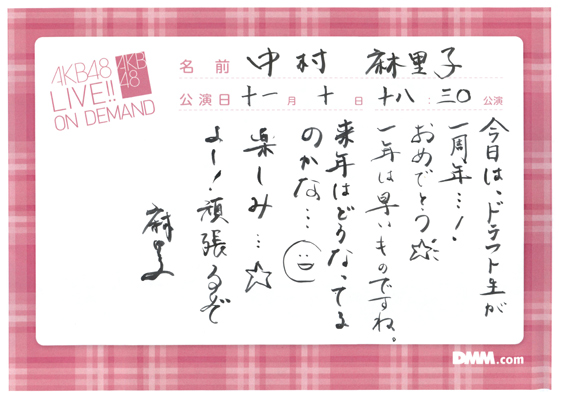 AKB48
LIVE!!
ON DEMAND
AKB
48
名前 中村 麻里子
公演日 十一月 十日 十八:三〇 公演
今日は、ドラフト生が
一周年…!
おめでとう☆
一年は早いものですね。
来年はどうなってる
のかな…
楽しみ…☆
よーし!頑張るぞ
DMM.com